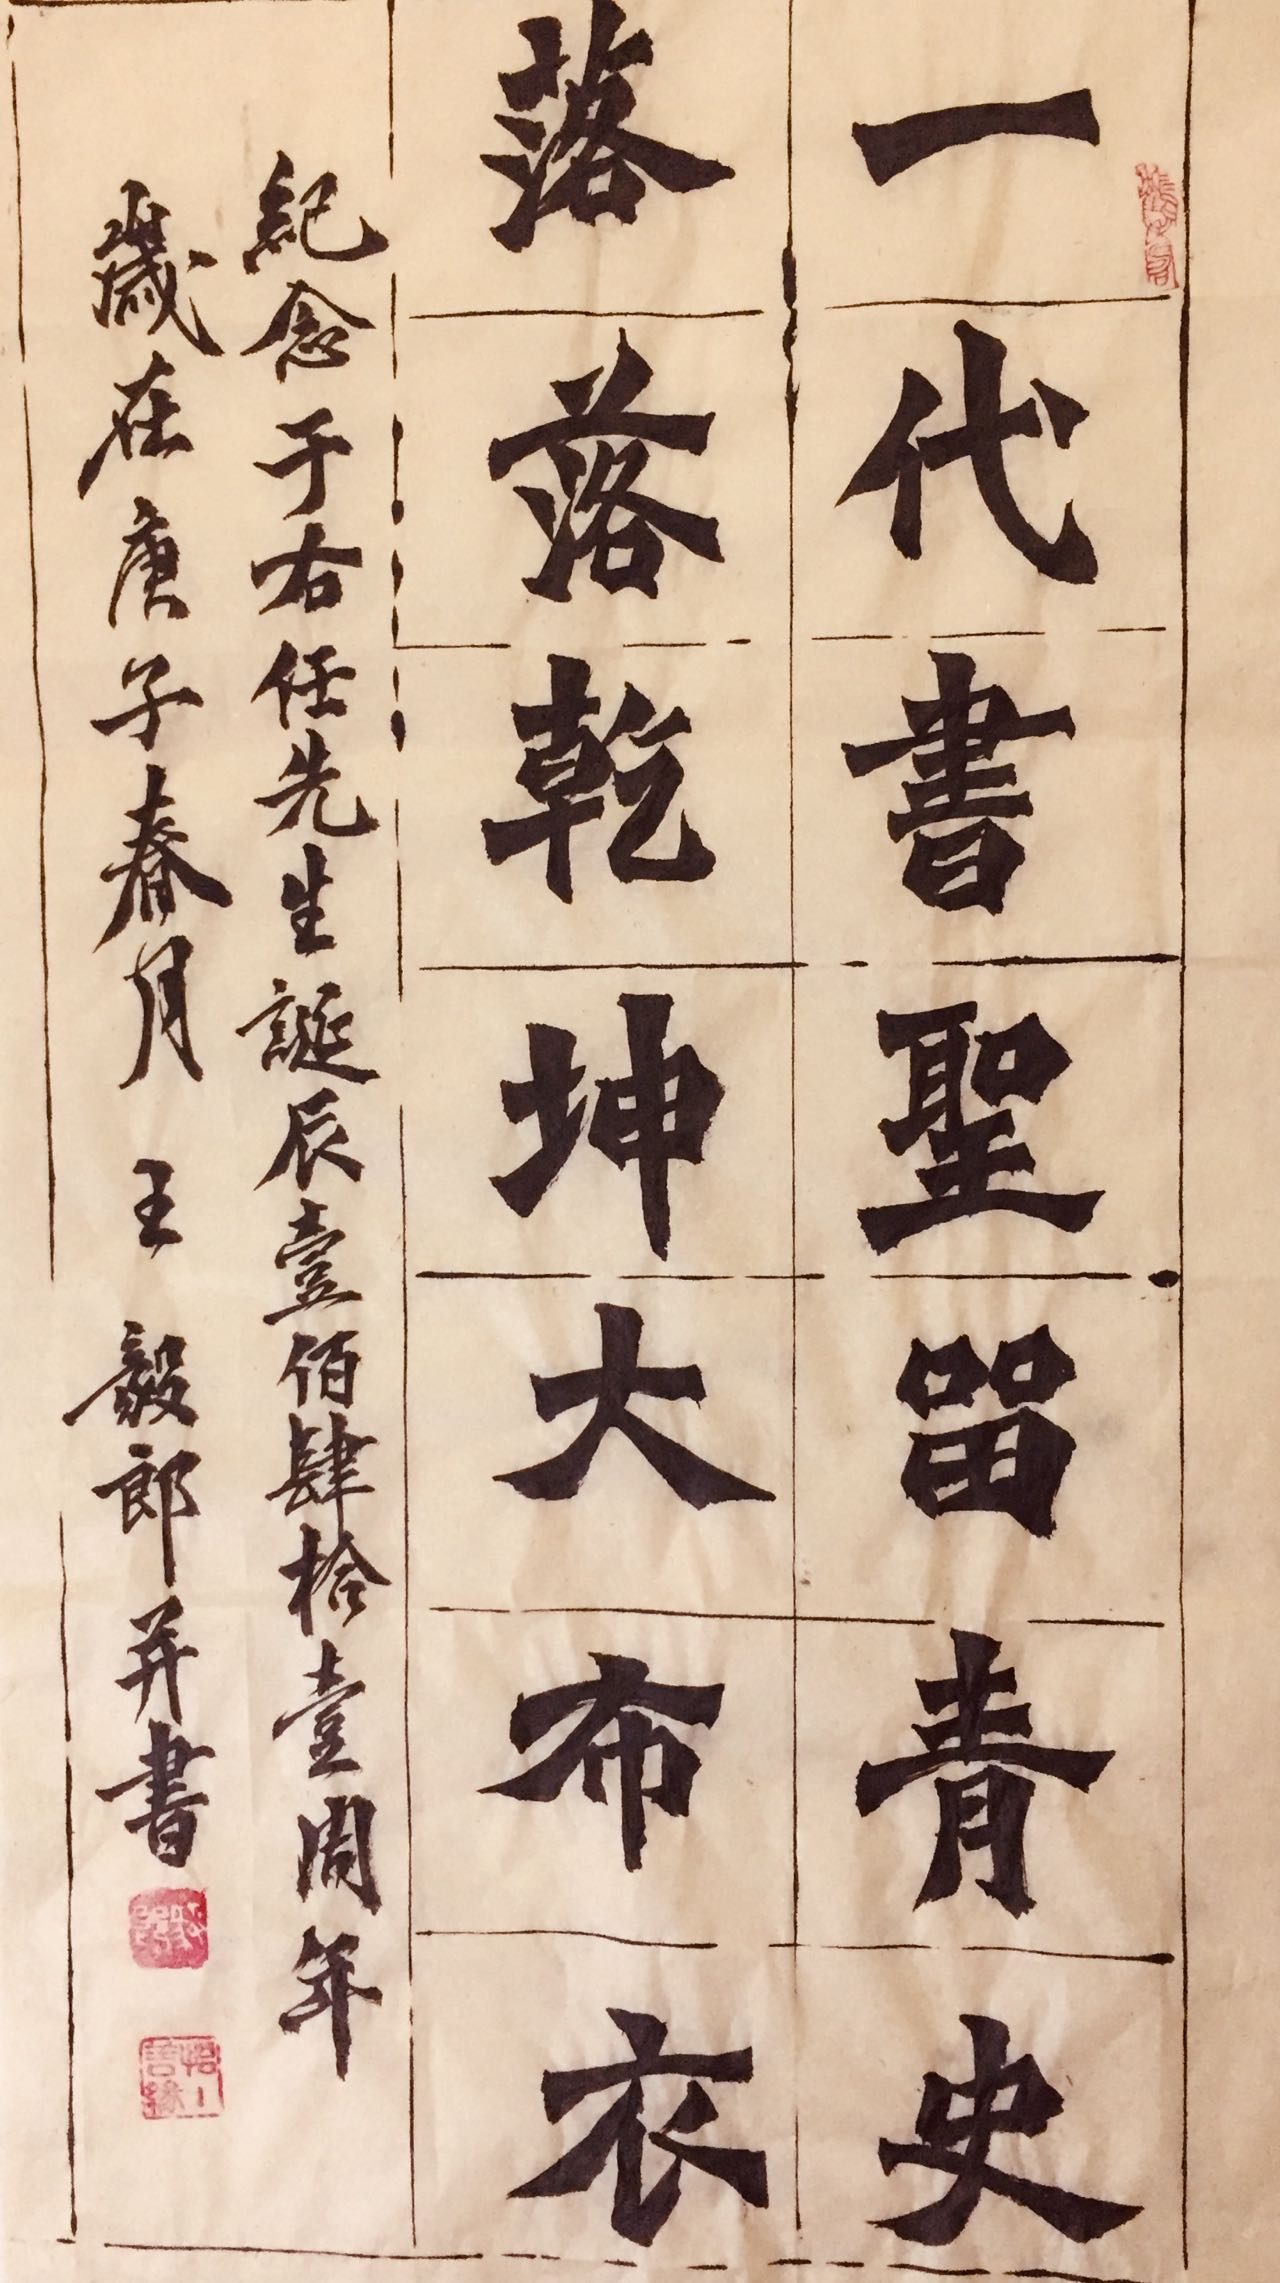 一代書聖畱青史
落落乾坤大布衣
紀念于右任先生誕辰壹佰肆拾壹周年
歲在庚子春月 王毅郎并書